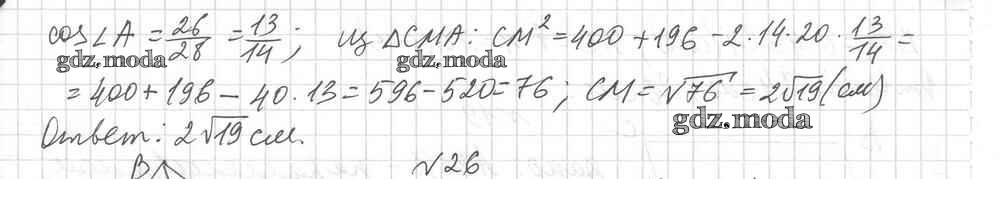 cos∠A = 26/28 = 13/14; из △CMA: CM² = 400 + 196 - 2·14·20·13/14 =
gdz.moda gdz.moda
= 400 + 196 - 40·13 = 596 - 520 = 76; CM = √76 = 2√19 (см)
gdz.moda
Ответ: 2√19 см.
B №26